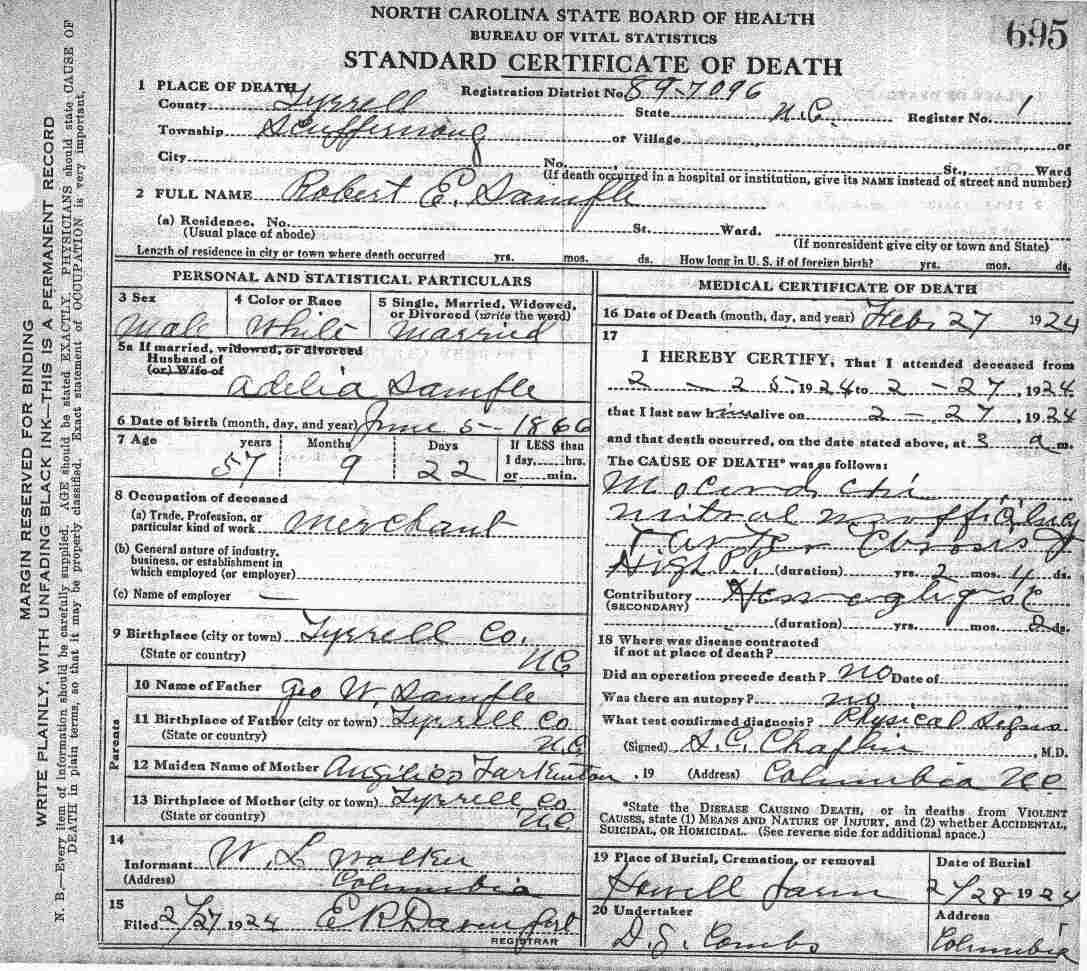 NORTH CAROLINA STATE BOARD OF HEALTH
BUREAU OF VITAL STATISTICS
695
STANDARD CERTIFICATE OF DEATH
1 PLACE OF DEATH Registration District No. 89-7096
County Tyrrell State N.C. Register No. 1
Township Scuffernong or Village or
City No. St., Ward
(If death occurred in a hospital or institution, give its NAME instead of street and number)
2 FULL NAME Robert E. Sample
(a) Residence. No. St. Ward.
(Usual place of abode) (If nonresident give city or town and State)
Length of residence in city or town where death occurred yrs. mos. ds. How long in U. S. if of foreign birth? yrs. mos. ds.
PERSONAL AND STATISTICAL PARTICULARS
3 Sex 4 Color or Race 5 Single, Married, Widowed,
or Divorced (write the word)
Male White Married
5a If married, widowed, or divorced
Husband of
(or) Wife of
Adelia Sample
6 Date of birth (month, day, and year) June 5-1866
7 Age years Months Days If LESS than
1 day, hrs.
57 9 22 or min.
8 Occupation of deceased
(a) Trade, Profession, or
particular kind of work Merchant
(b) General nature of industry,
business, or establishment in
which employed (or employer)
(c) Name of employer —
9 Birthplace (city or town) Tyrrell Co.
(State or country) N.C.
Parents
10 Name of Father Geo W. Sample
11 Birthplace of Father (city or town) Tyrrell Co
(State or country) N.C.
12 Maiden Name of Mother Tarkenton
13 Birthplace of Mother (city or town) Tyrrell Co
(State or country) N.C.
14
Informant W. L Walker
(Address) Columbia
15
Filed 2/27 1924 E R Davenport
REGISTRAR
MEDICAL CERTIFICATE OF DEATH
16 Date of Death (month, day, and year) Feb 27 1924
17
I HEREBY CERTIFY, That I attended deceased from
2 - 25- 1924 to 2 - 27, 1924
that I last saw him alive on 2 - 27, 1924
and that death occurred, on the date stated above, at 3 a m.
The CAUSE OF DEATH* was as follows:
mitral
High (duration) yrs. 2 mos. 4 ds.
Contributory
(SECONDARY)
(duration) yrs. mos. 2 ds.
18 Where was disease contracted
if not at place of death?
Did an operation precede death? no Date of
Was there an autopsy? no
What test confirmed diagnosis? Physical Signs
(Signed) Chaplin, M.D.
, 19 (Address) Columbia N.C.
*State the DISEASE CAUSING DEATH, or in deaths from VIOLENT
CAUSES, state (1) MEANS AND NATURE OF INJURY, and (2) whether ACCIDENTAL,
SUICIDAL, OR HOMICIDAL. (See reverse side for additional space.)
19 Place of Burial, Cremation, or removal Date of Burial
Howell farm 2/28 1924
20 Undertaker Address
D. S. Combs Columbia
MARGIN RESERVED FOR BINDING
WRITE PLAINLY, WITH UNFADING BLACK INK—THIS IS A PERMANENT RECORD
N. B.—Every item of information should be carefully supplied. AGE should be stated EXACTLY. PHYSICIANS should state CAUSE OF
DEATH in plain terms, so that it may be properly classified. Exact statement of OCCUPATION is very important.